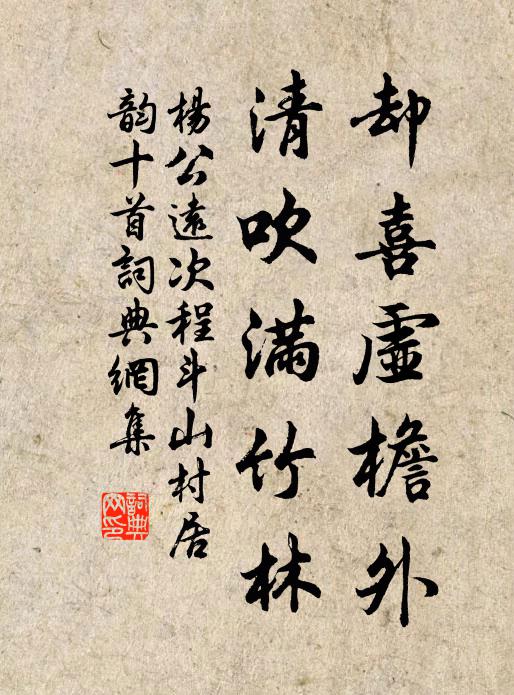 却喜虛檐外
清吹滿竹林
楊公遠次程斗山村居
韵十首詞典網集
詞典
网印